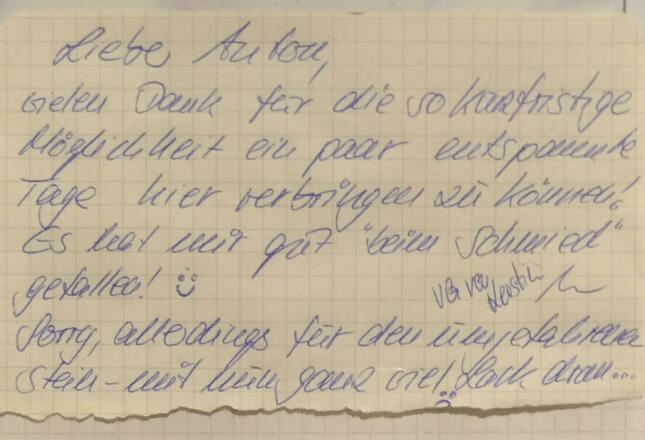 Liebe Anton,
vielen Dank für die so kurzfristige
Möglichkeit ein paar entspannte
Tage hier verbringen zu können!
Es hat mir gut "beim Schmied"
gefallen! :)
Kerstin
Sorry, allerdings für den umgefahrenen
Stein - mit nun ganz viel Lack dran...
:(